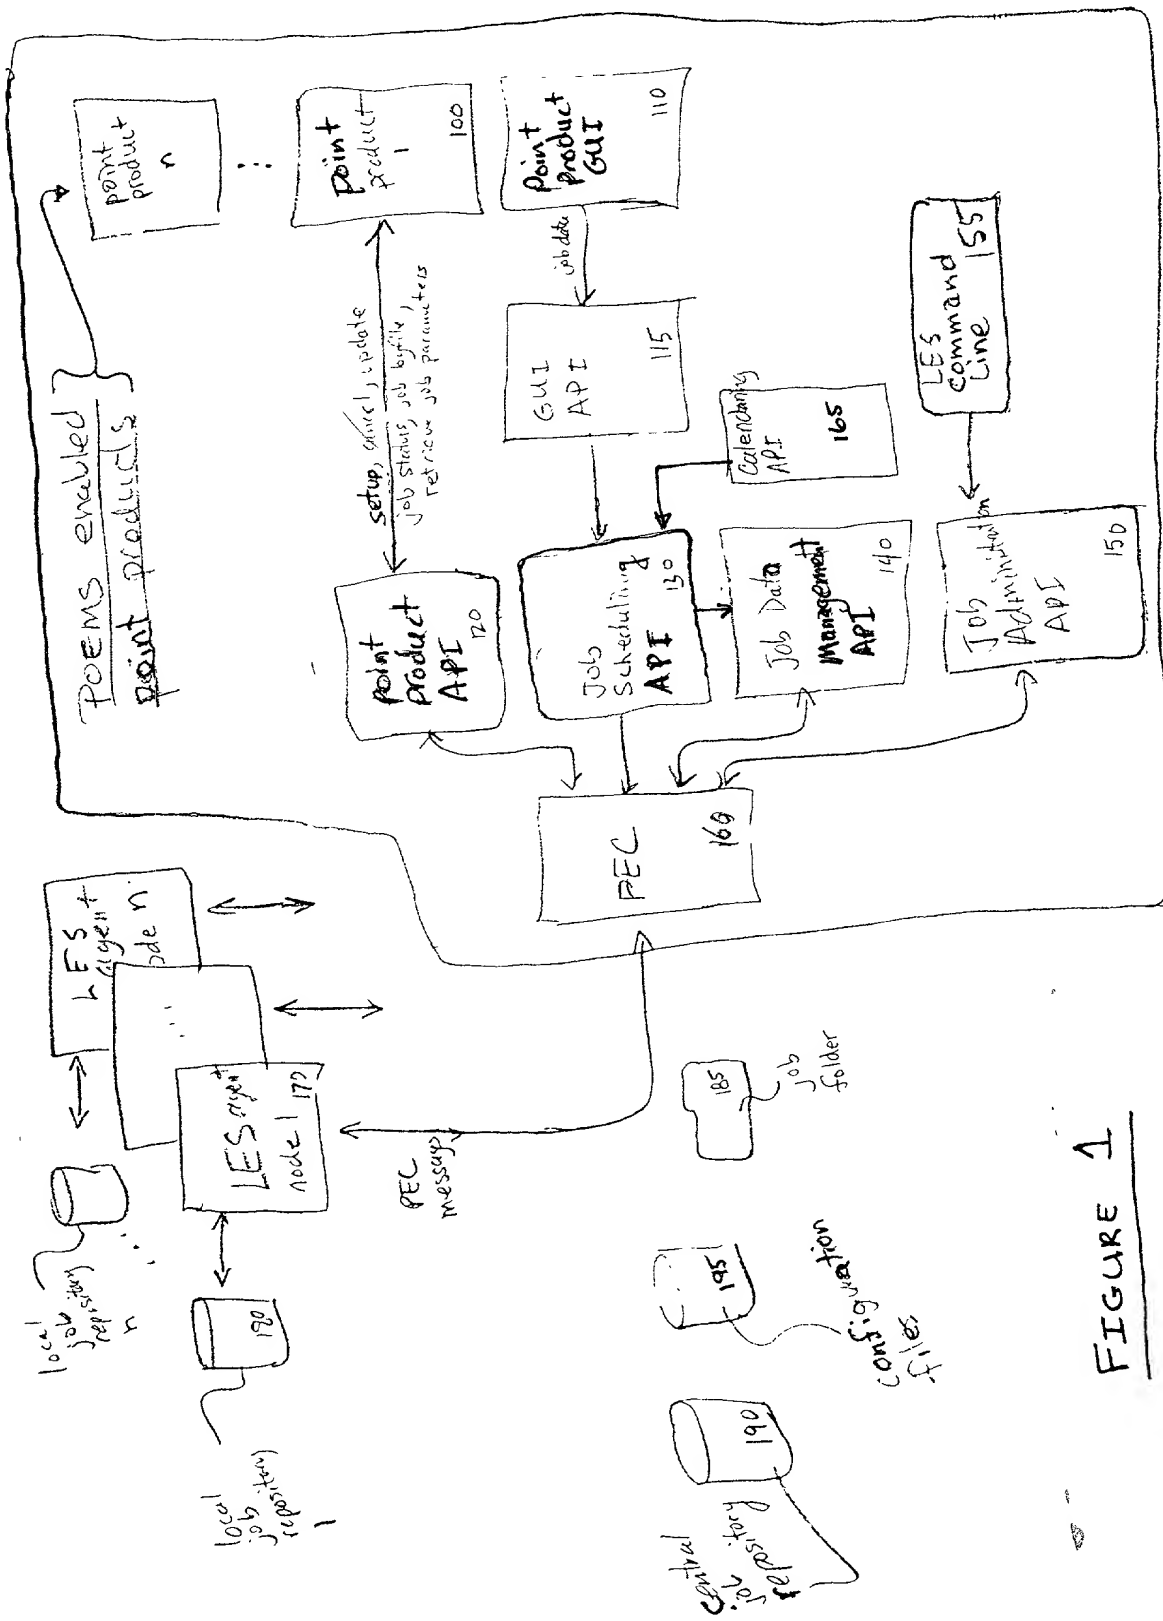 POEMS enabled
point products
point
product
n
...
point
product
1
100
point
product
GUI
110
job data
setup, cancel, update
job status, job by file,
retrieve job parameters
GUI
API
115
Calendaring
API
165
LES
Command
Line
155
point
product
API
120
Job
Scheduling
API
130
Job Data
Management
API
140
Job
Administration
API
150
PEC
160
LES
agent
node n
...
LES agent
node 1
170
PEC
message
local
job
repository
n
...
local
job
repository
1
180
185
job
folder
195
configuration
files
190
central
job
repository
FIGURE 1